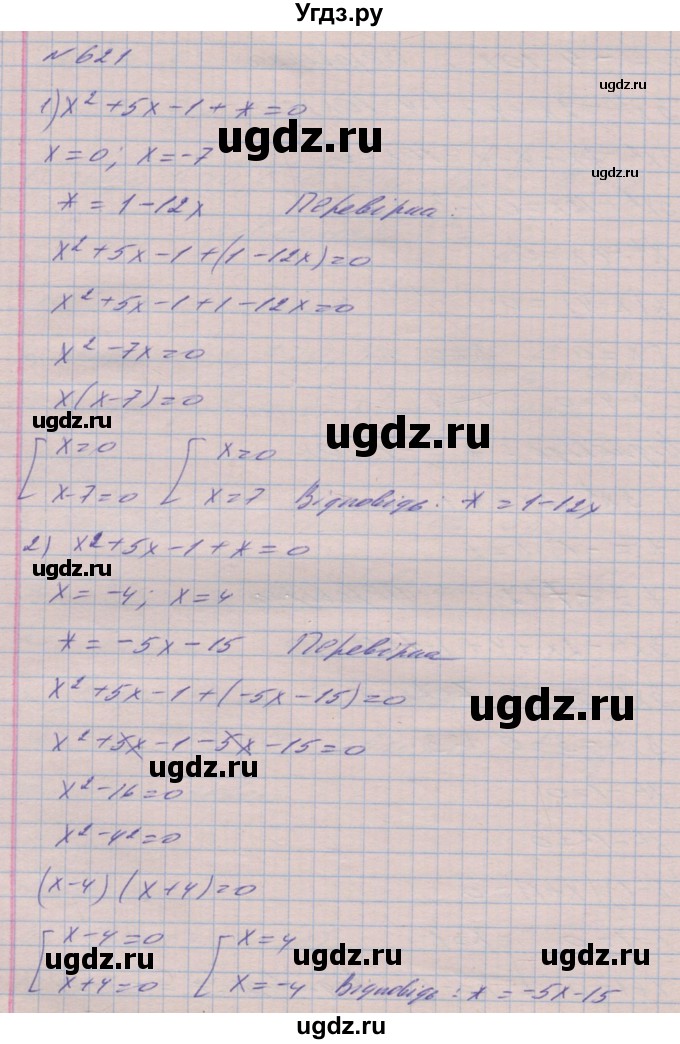 Угдз.ру
№621
ugdz.ru
1) x² + 5x - 1 + * = 0
ugdz.ru
x = 0; x = -7
ugdz.ru
* = 1 - 12x Перевірка:
x² + 5x - 1 + (1 - 12x) = 0
x² + 5x - 1 + 1 - 12x = 0
x² - 7x = 0
x(x - 7) = 0
ugdz.ru ugdz.ru
[ x = 0 [ x = 0
x - 7 = 0 x = 7 Відповідь: * = 1 - 12x
2) x² + 5x - 1 + * = 0
ugdz.ru
x = -4; x = 4
* = -5x - 15 Перевірка
x² + 5x - 1 + (-5x - 15) = 0
ugdz.ru
x² + 5x - 1 - 5x - 15 = 0
ugdz.ru
x² - 16 = 0
x² - 4² = 0
(x - 4)(x + 4) = 0
[ x - 4 = 0 [ x = 4
ugdz.ru ugdz.ru ugdz.ru
x + 4 = 0 x = -4 Відповідь: * = -5x - 15
ugdz.ru